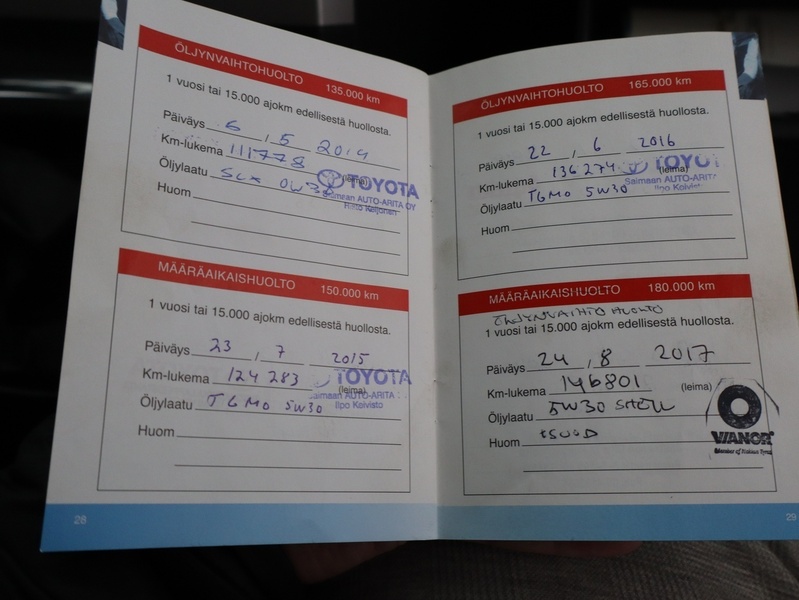 ÖLJYNVAIHTOHUOLTO 135.000 km
1 vuosi tai 15.000 ajokm edellisestä huollosta.
Päiväys 6 , 5 2014
Km-lukema 111778 (leima)
Öljylaatu 0W30
TOYOTA
Saimaan AUTO-ARITA OY
Risto Keijonen
Huom
MÄÄRÄAIKAISHUOLTO 150.000 km
1 vuosi tai 15.000 ajokm edellisestä huollosta.
Päiväys 23 , 7 2015
Km-lukema 124283 (leima)
Öljylaatu TGMO 5W30
TOYOTA
Saimaan AUTO-ARITA
Ilpo Koivisto
Huom
28
ÖLJYNVAIHTOHUOLTO 165.000 km
1 vuosi tai 15.000 ajokm edellisestä huollosta.
Päiväys 22 , 6 2016
Km-lukema 136274 (leima)
Öljylaatu TGMO 5W30
TOYOT
Saimaan AUTO-ARITA
Ilpo Koivist
Huom
MÄÄRÄAIKAISHUOLTO 180.000 km
ÖLJYNVAIHTO HUOLTO
1 vuosi tai 15.000 ajokm edellisestä huollosta.
Päiväys 24 , 8 2017
Km-lukema 146801 (leima)
Öljylaatu 5W30 SHELL
Huom
VIANOR
Member of Nokian Tyres
29